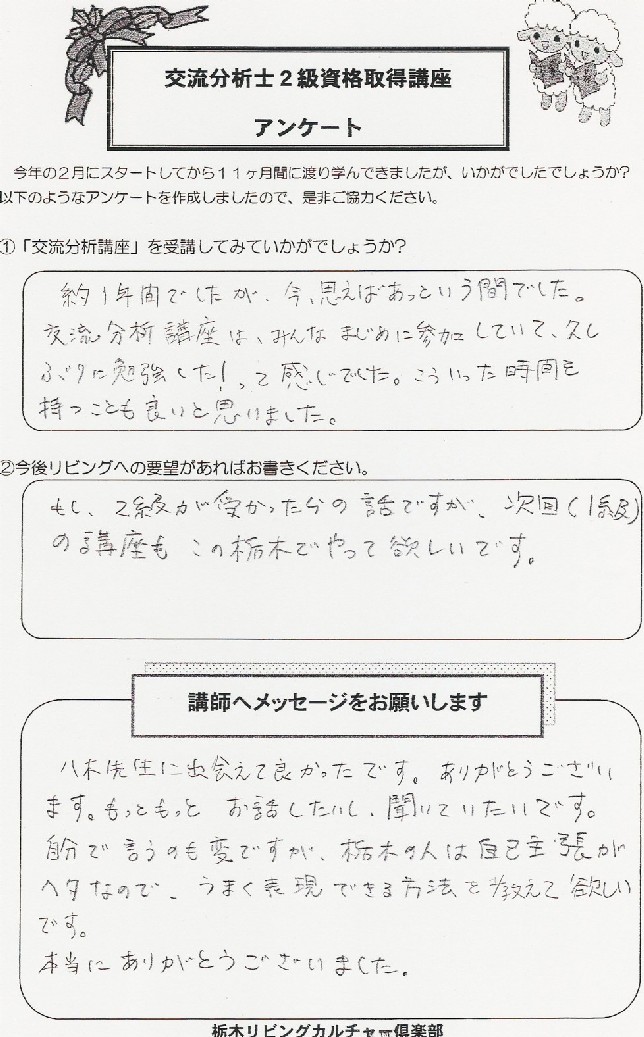 交流分析士2級資格取得講座
アンケート
今年の2月にスタートしてから11ヶ月間に渡り学んできましたが、いかがでしたでしょうか?
以下のようなアンケートを作成しましたので、是非ご協力ください。
①「交流分析講座」を受講してみていかがでしょうか?
約1年間でしたが、今、思えばあっという間でした。
交流分析講座は、みんなまじめに参加していて、久し
ぶりに勉強した!って感じでした。こういった時間を
持つことも良いと思いました。
②今後リビングへの要望があればお書きください。
もし、2級が受かった分の話ですが、次回(1級)
の講座もこの栃木でやって欲しいです。
講師へメッセージをお願いします
八木先生に出会えて良かったです。ありがとうござい
ます。もっともっとお話したいし、聞いていたいです。
自分で言うのも変ですが、栃木の人は自己主張が
ヘタなので、うまく表現できる方法を教えて欲しい
です。
本当にありがとうございました。
栃木リビングカルチャー倶楽部